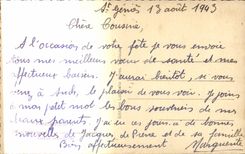 St Genès 13 août 1943
Chère Cousine
A l'occasion de votre fête je vous envoie
tous mes meilleurs vœux de santé et mes
affectueux baisers. J'aurai bientôt, si vous
venez à such, le plaisir de vous voir. Je joins
à mon petit mot les bons souvenirs de mes
beaux parents. J'ai eu ces jours-ci de bonnes
nouvelles de Jacques, de Pierre et de sa famille
Bien affectueusement Marguerite